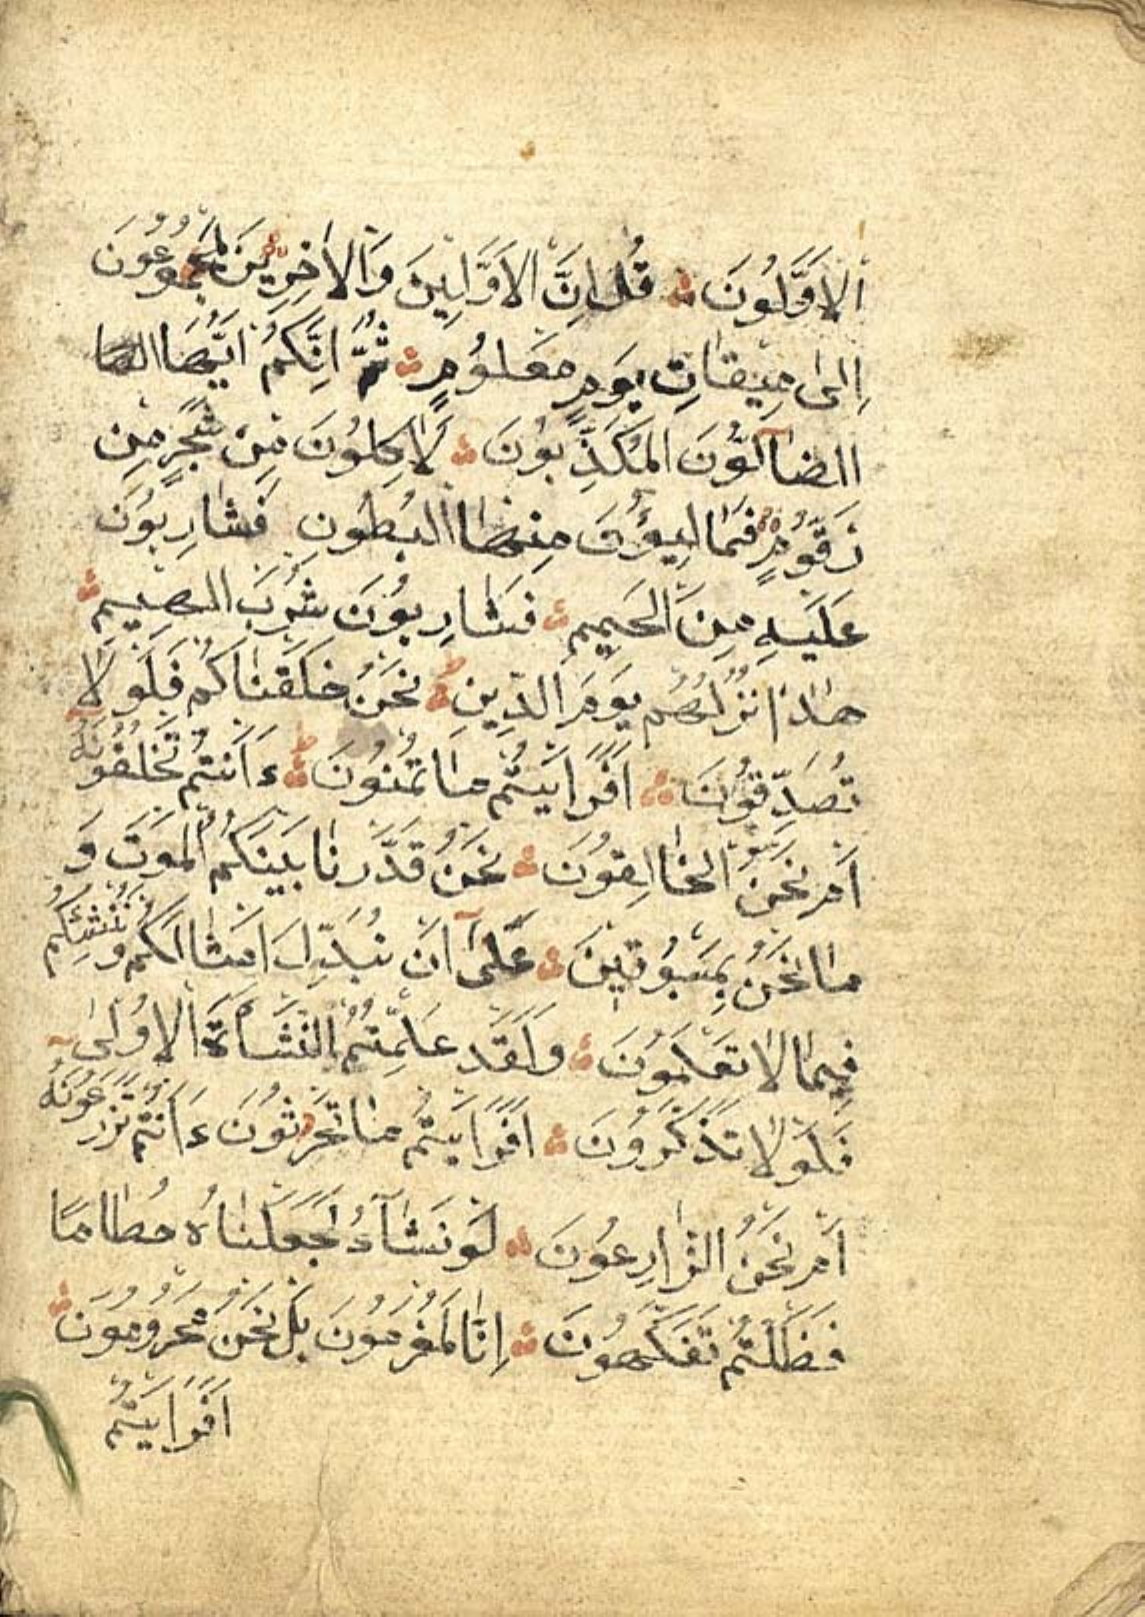 الاَوَّلُونَ قُلْ اِنَّ الاَوَّلِينَ وَالاٰخِرِينَ لَمَجْمُوعُونَ
اِلىٰ مِيقَاتِ يَوْمٍ مَعْلُومٍ ثُمَّ اِنَّكُمْ اَيُّهَا
الضَّآلُّونَ الْمُكَذِّبُونَ لَاٰكِلُونَ مِنْ شَجَرٍ مِنْ
زَقُّومٍ فَمَالِيؤُنَ مِنْهَا الْبُطُونِ فَشَارِبُونَ
عَلَيْهِ مِنَ الْحَمِيمِ فَشَارِبُونَ شُرْبَ الْهِيمِ
هٰذَا نُزُلُهُمْ يَوْمَ الدِّينِ نَحْنُ خَلَقْنَاكُمْ فَلَوْلَا
تُصَدِّقُونَ اَفَرَاَيْتُمْ مَا تُمْنُونَ ءَاَنْتُمْ تَخْلُقُونَهُ
اَمْ نَحْنُ الْخَالِقُونَ نَحْنُ قَدَّرْنَا بَيْنَكُمُ الْمَوْتَ وَ
مَا نَحْنُ بِمَسْبُوقِينَ عَلىٰٓ اَنْ نُبَدِّلَ اَمْثَالَكُمْ وَنُنْشِئَكُمْ
فِيمَا لَا تَعْلَمُونَ وَلَقَدْ عَلِمْتُمُ النَّشْاَةَ الْاُولىٰ
فَلَوْلَا تَذَكَّرُونَ اَفَرَاَيْتُمْ مَا تَحْرُثُونَ ءَاَنْتُمْ تَزْرَعُونَهُ
اَمْ نَحْنُ الزَّارِعُونَ لَوْ نَشَآءُ لَجَعَلْنَاهُ حُطَامًا
فَظَلْتُمْ تَفَكَّهُونَ اِنَّا لَمُغْرَمُونَ بَلْ نَحْنُ مَحْرُومُونَ
اَفَرَاَيْتُمْ